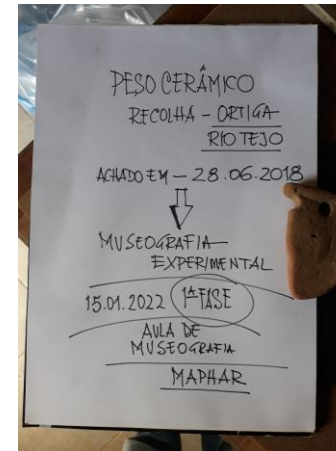 PESO CERÂMICO
RECOLHA - ORTIGA
RIO TEJO
ACHADO EM - 28.06.2018
MUSEOGRAFIA
EXPERIMENTAL
15.01.2022 1ª FASE
AULA DE
MUSEOGRAFIA
MAPHAR